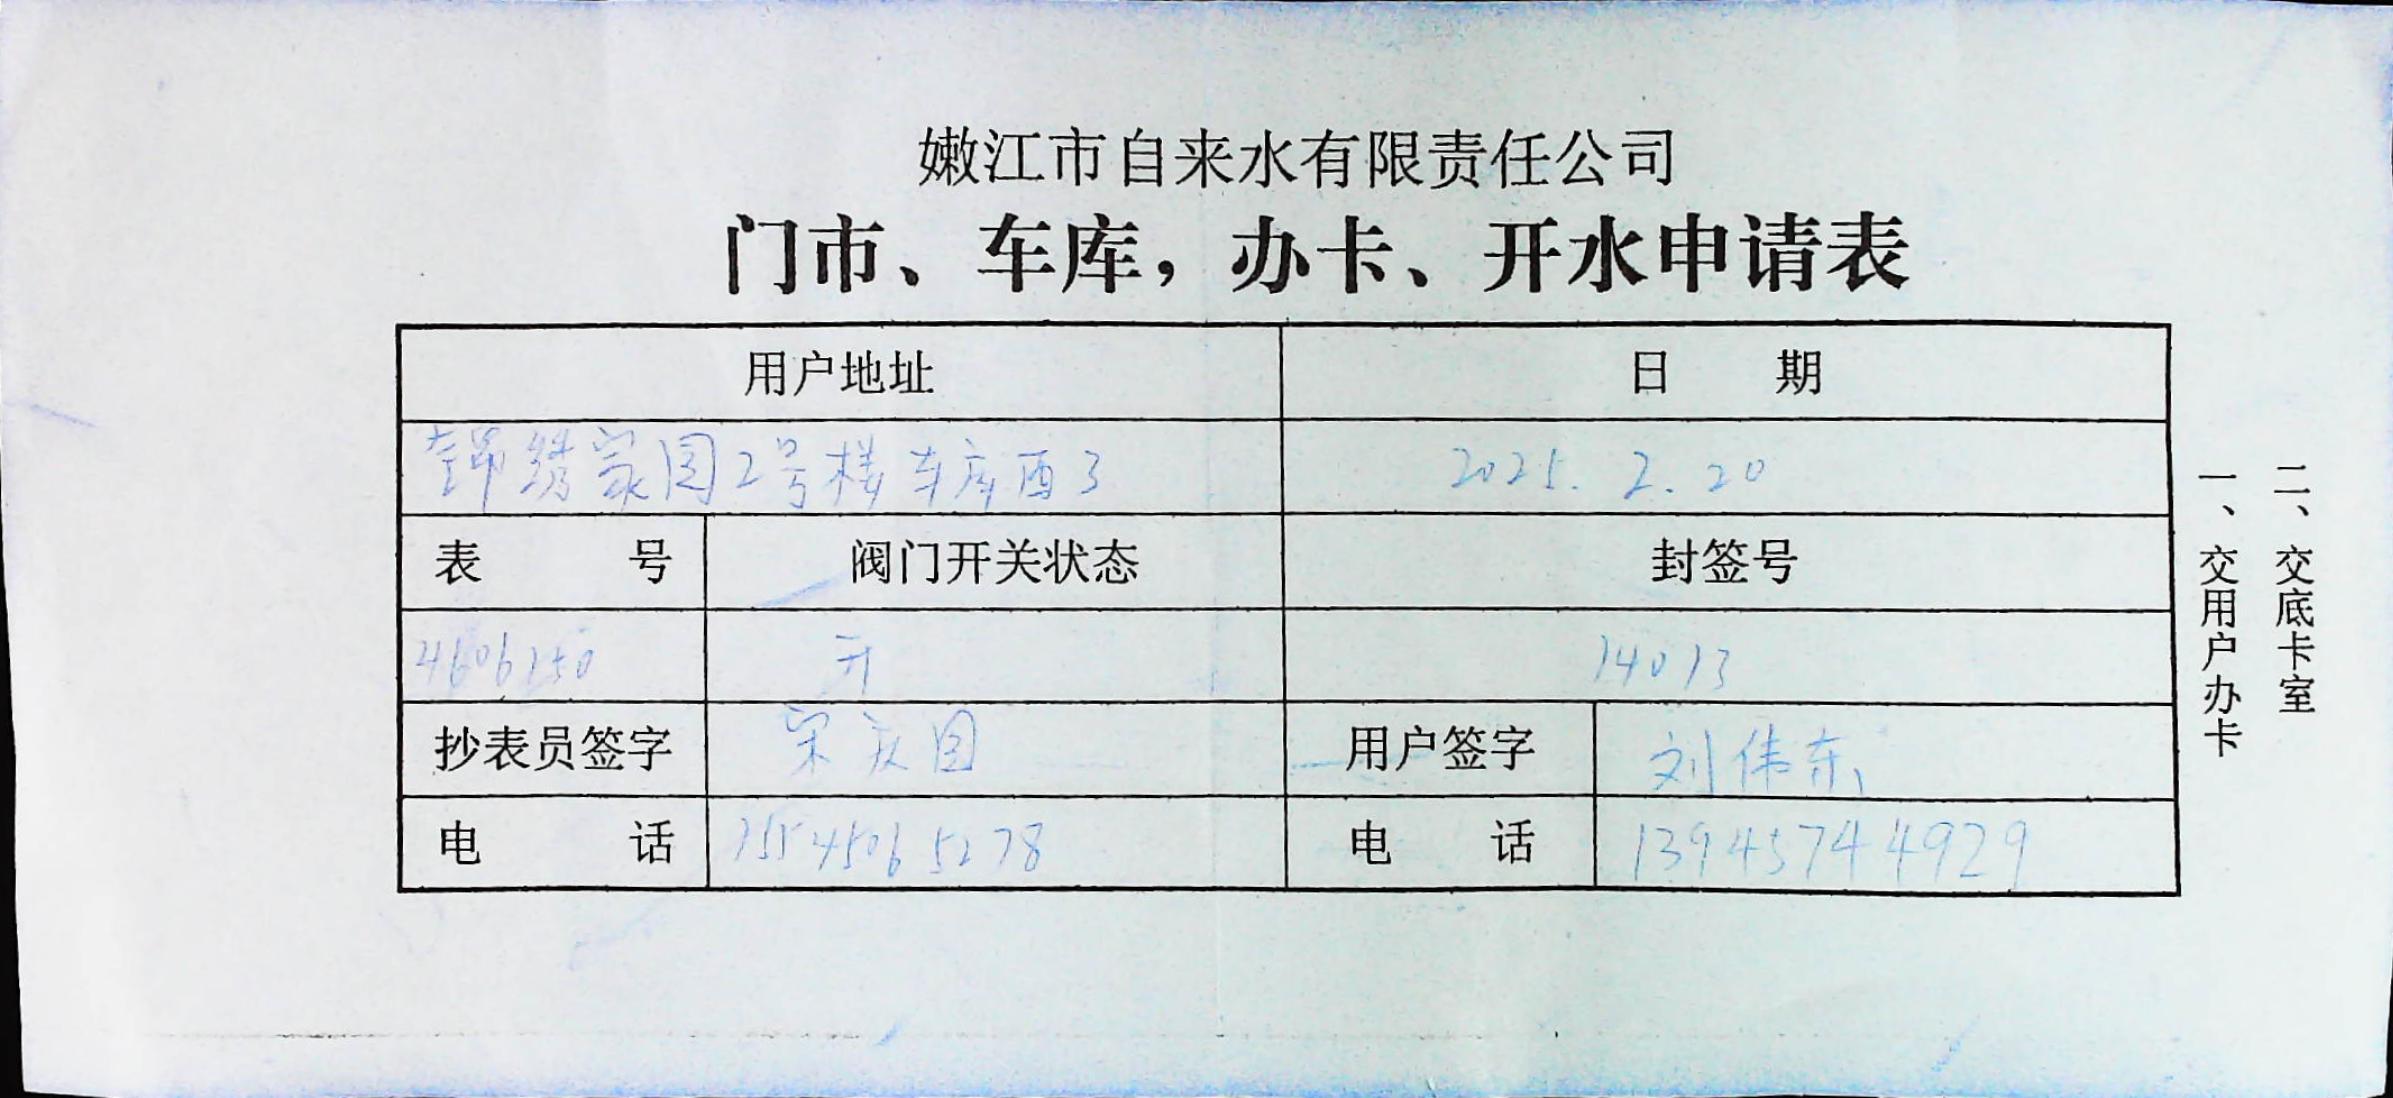 嫩江市自来水有限责任公司
门市、车库，办卡、开水申请表
用户地址 日 期
锦绣家园2号楼车库西3 2025.2.20
表 号 阀门开关状态 封签号
4606150 开 14013
抄表员签字 宋庆国 用户签字 刘伟东
电 话 15545065278 电 话 13945744929
一、交用户办卡
二、交底卡室